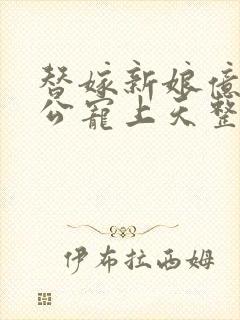 替嫁新娘億
公寵上天整
伊布拉西姆